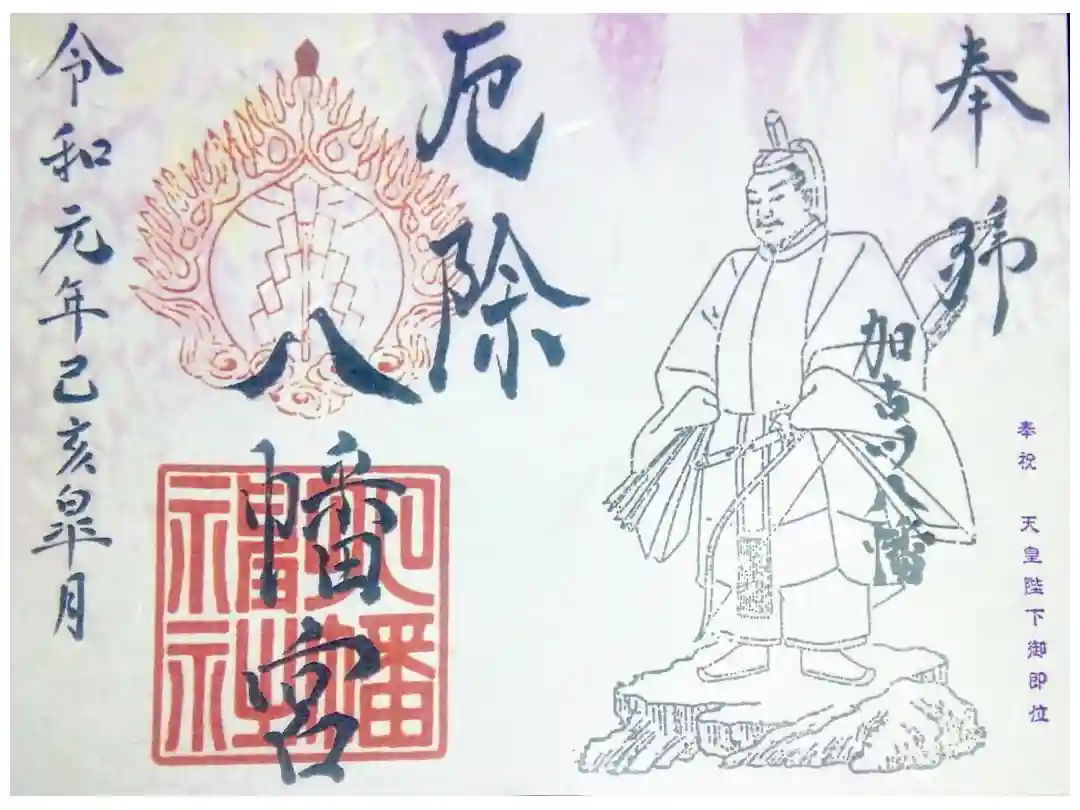 奉拜
奉祝 天皇陛下御即位
加古
八幡
厄除
八幡宮
令和元年己亥皐月